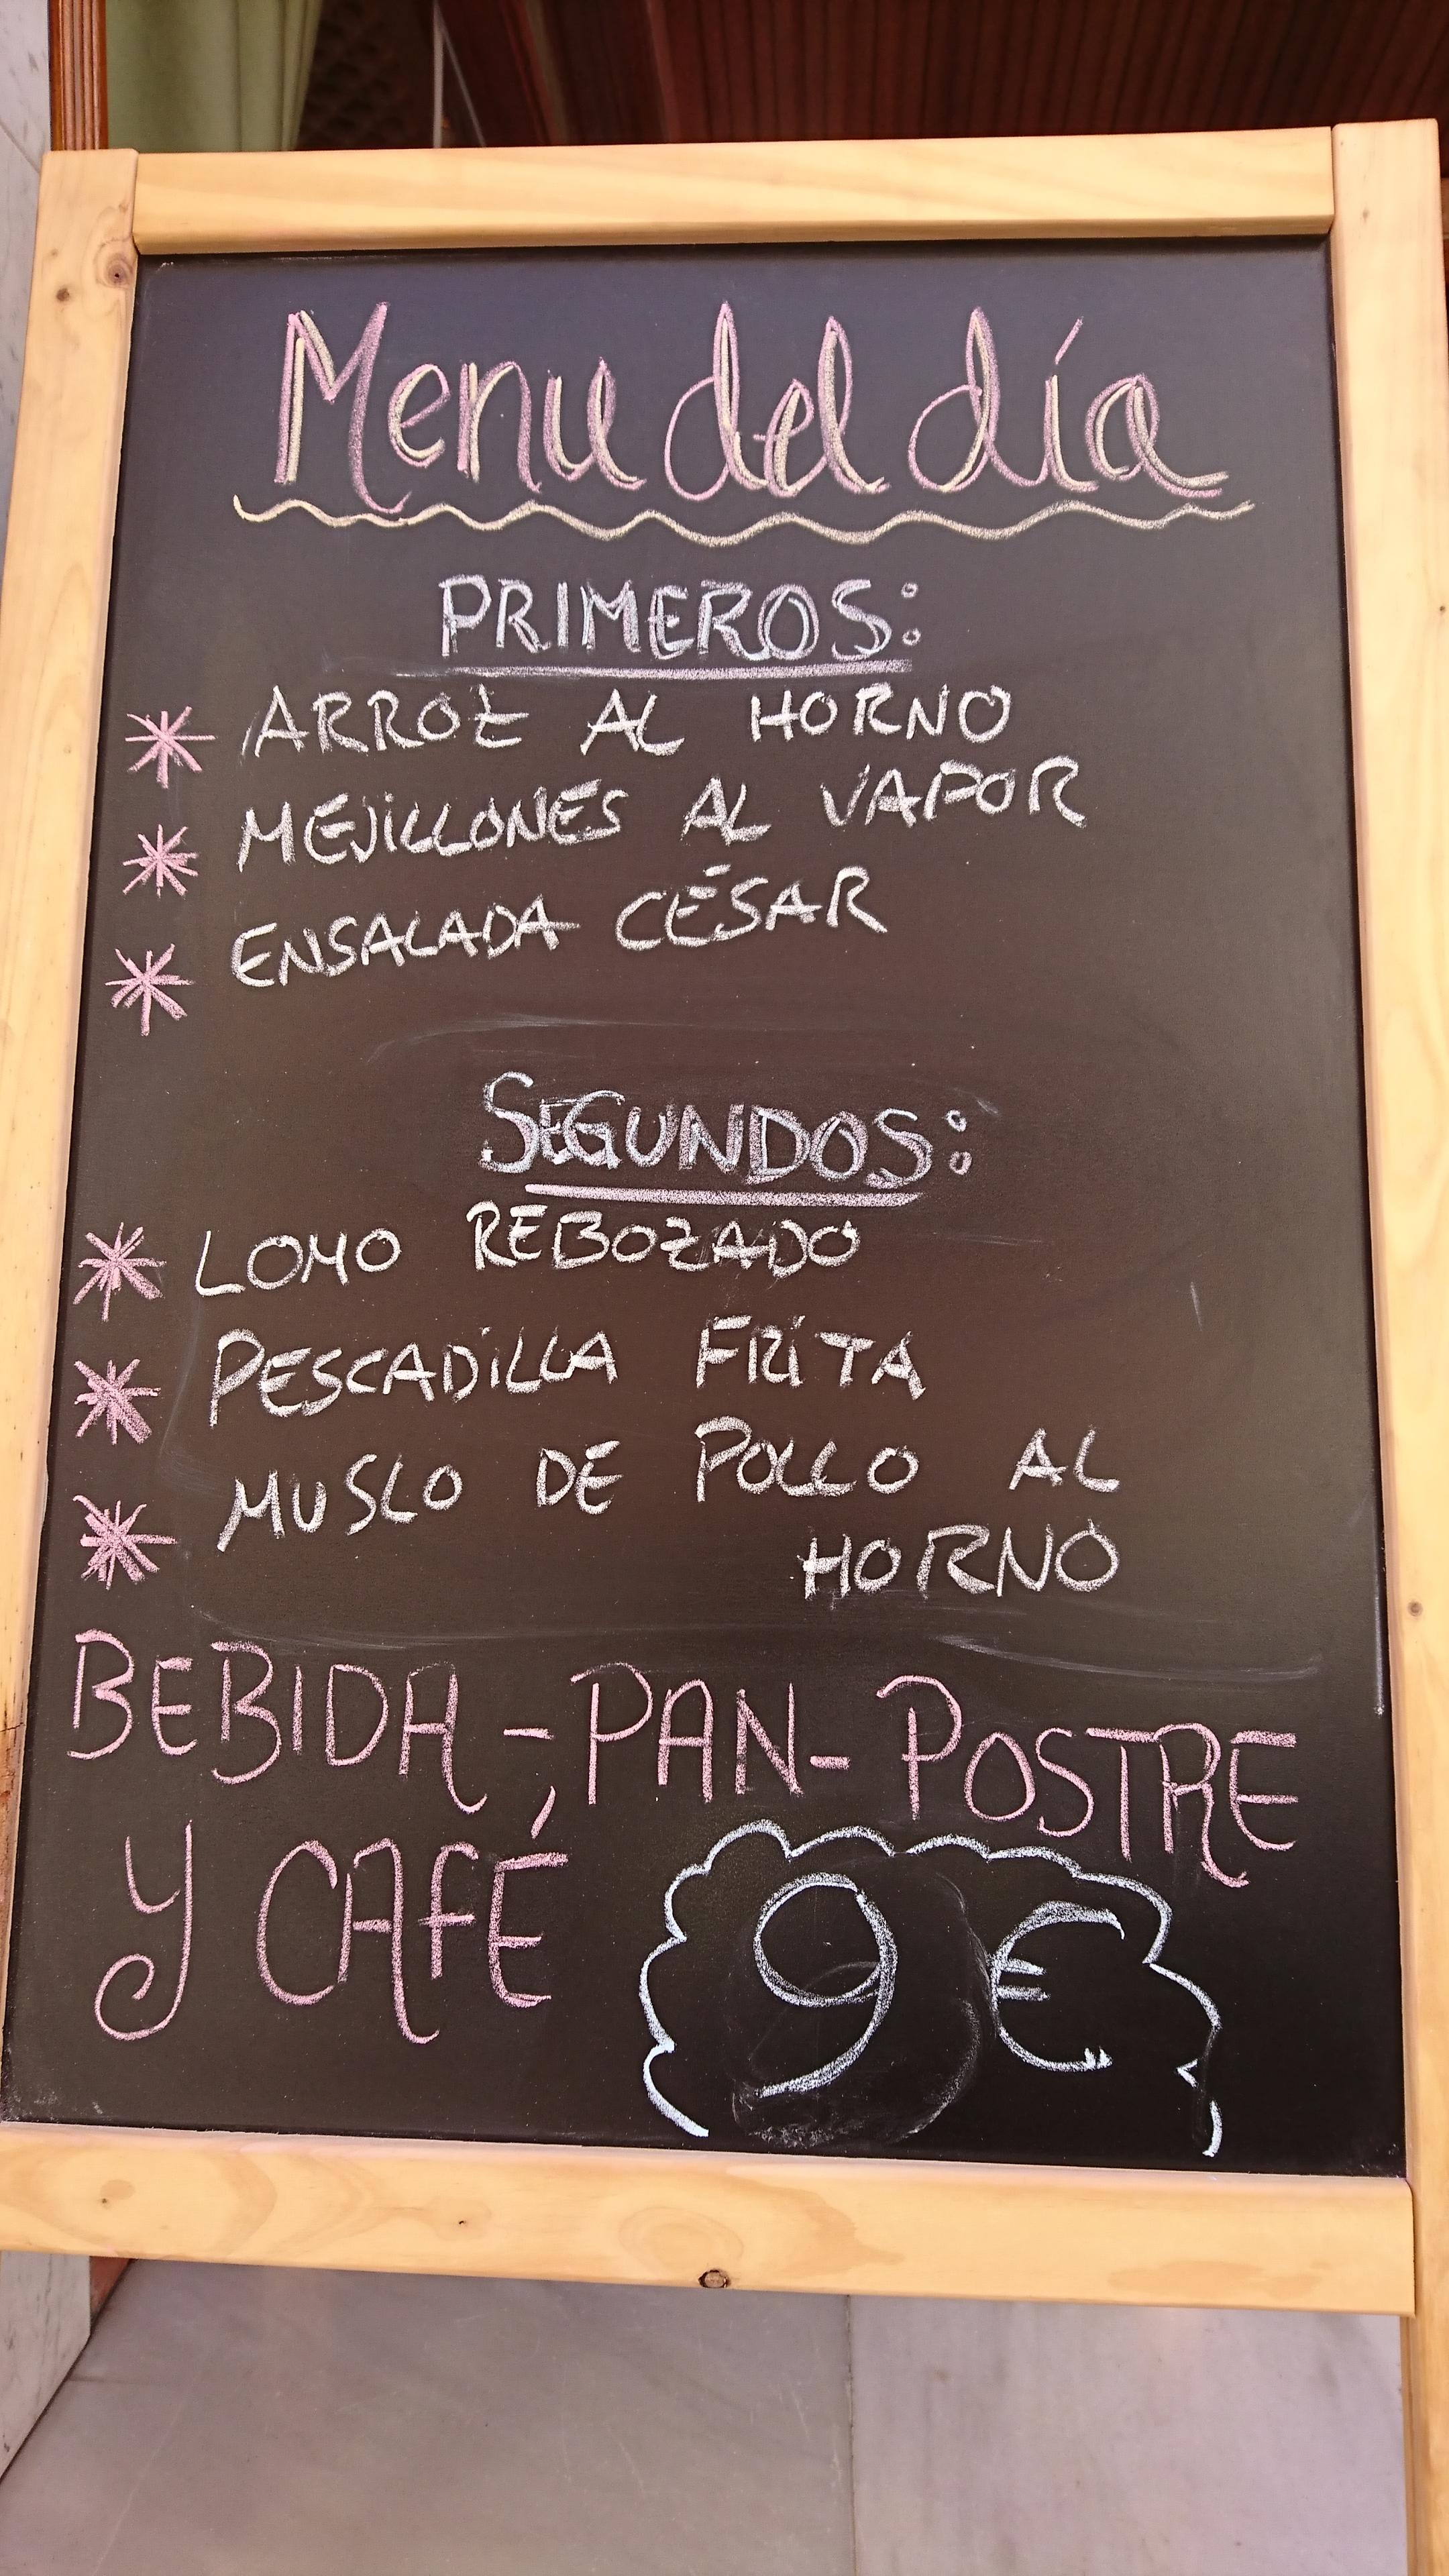 Menu del día
PRIMEROS:
* ARROZ AL HORNO
* MEJILLONES AL VAPOR
* ENSALADA CÉSAR
SEGUNDOS:
* LOMO REBOZADO
* PESCADILLA FRITA
* MUSLO DE POLLO AL
HORNO
BEBIDA - PAN - POSTRE
Y CAFÉ
9€